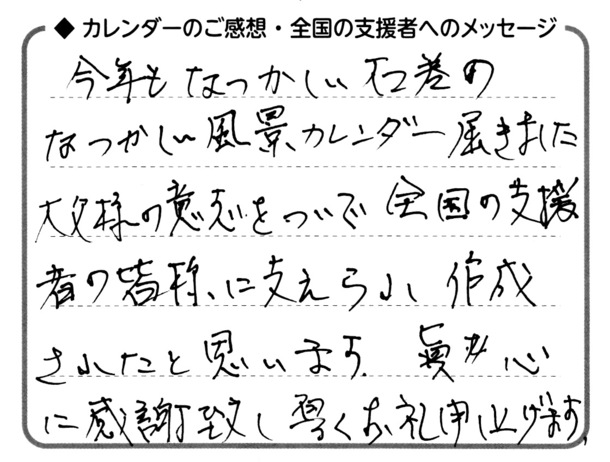 ◆ カレンダーのご感想・全国の支援者へのメッセージ
今年もなつかしい石巻の
なつかしい風景、カレンダー届きました
大父様の意志をついで全国の支援
者の皆様、に支えられ 作成
されたと思います。眞から心
に感謝致し厚くお礼申し上げます,